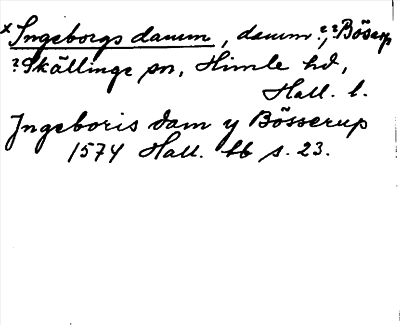 × Ingeborgs damm, damm?, ?Böserp
?Skällinge sn, Himle hd,
Hall. l.
Jngeboris dam y Bösserup
1574 Hall. tb s. 23.